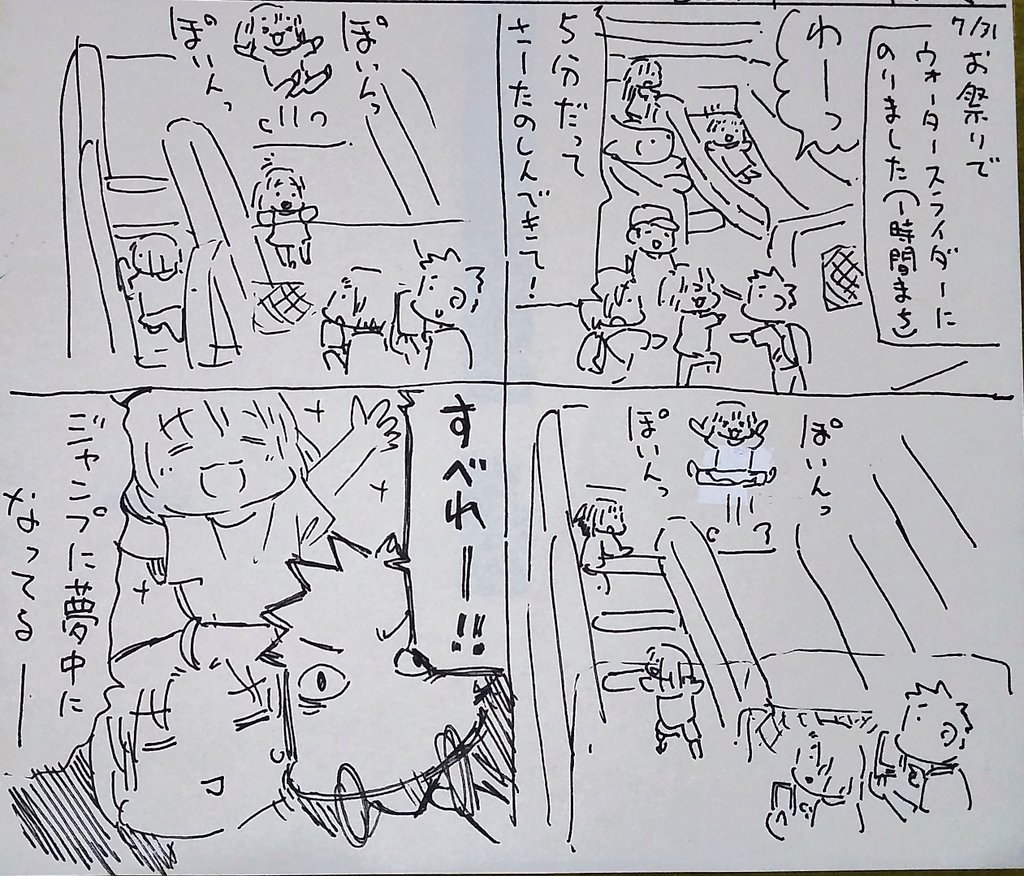 7/31
お祭りで
ウォータースライダーに
のりました(1時間まち)
わーっ
5分だって
さーたのしんできて!
ぽいんっ
ぽいんっ
ぽいんっ
ぽいんっ
すべれー!!
ジャンプに夢中に
なってるー